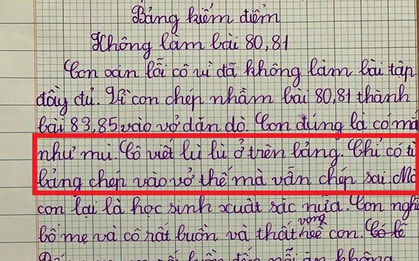 Bảng kiểm điểm
Không làm bài 80,81
Con xin lỗi cô vì đã không làm bài tập
đầy đủ. Vì con chép nhầm bài 80,81 thành
bài 83,85 vào vở dặn dò. Con đúng là có mắt
như mù. Cô viết lù lù ở trên bảng. Chỉ có từ
bảng chép vào vở thế mà vẫn chép sai. Mà
con lại là học sinh xuất sắc nữa. Con nghĩ
bố mẹ và cô rất buồn và thất vọng về con.